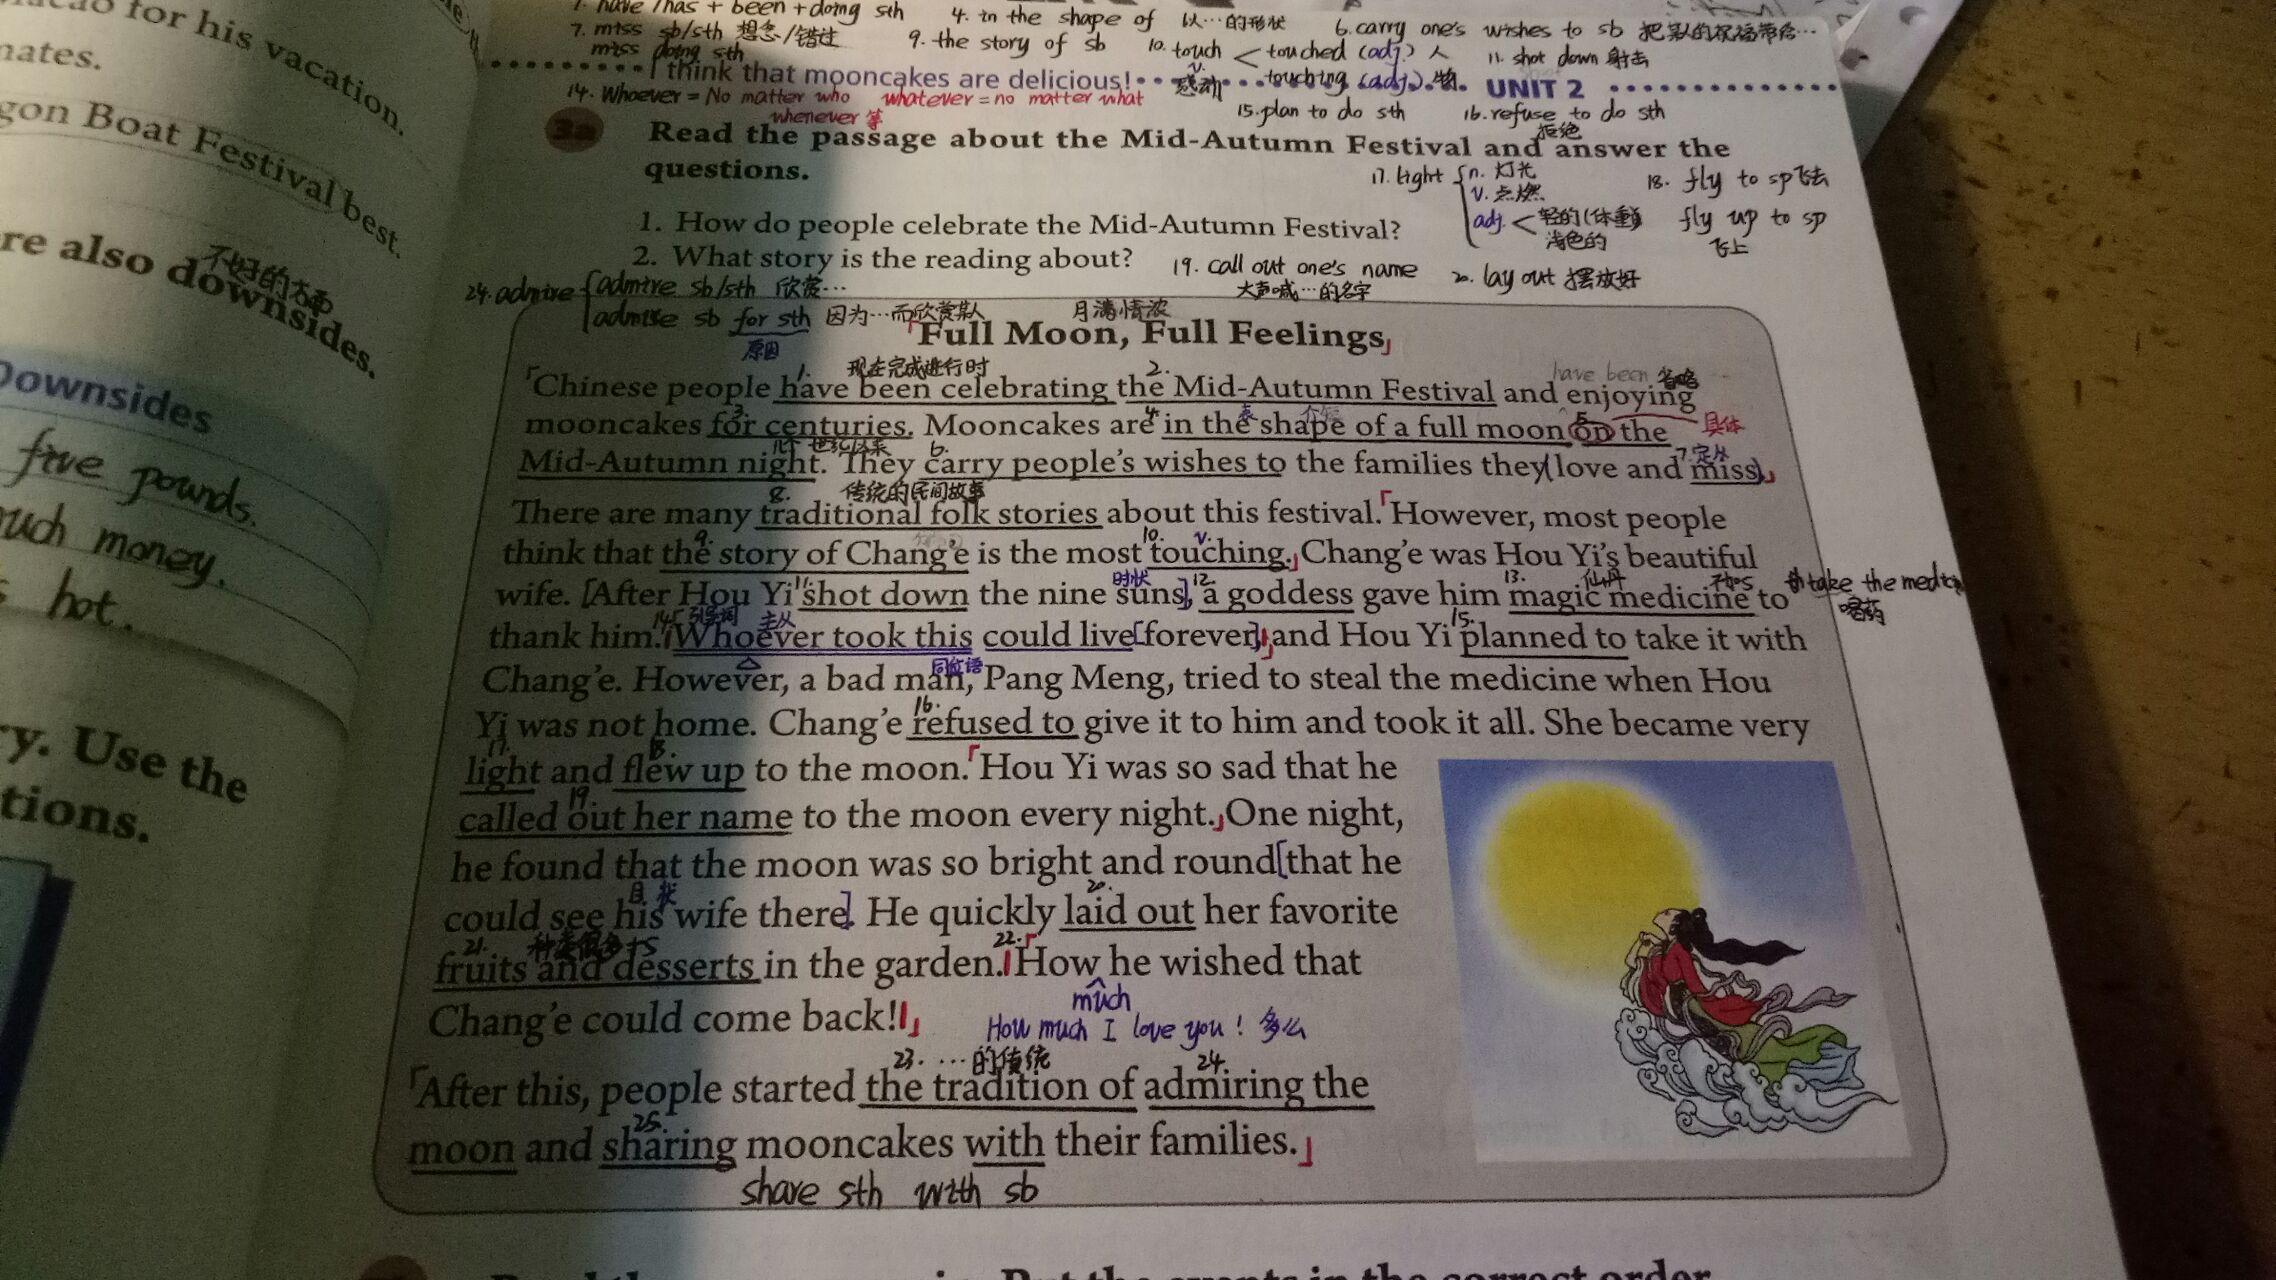 acao for his vacation.
mates.
gon Boat Festival best.
re also downsides.
Downsides
five pounds.
much money.
hot.
ry. Use the
tions.
1. have /has + been + doing sth 4. in the shape of 以…的形状 6. carry one's wishes to sb
7. miss sb/sth 想念/错过 9. the story of sb 10. touch < touched (adj.) 人 11. shot down 射击
miss doing sth
I think that mooncakes are delicious! v. 感动 touching (adj.) 物. UNIT 2
14. Whoever = No matter who whatever = no matter what
whenever 等
15. plan to do sth 16. refuse to do sth
拒绝
3a Read the passage about the Mid-Autumn Festival and answer the
questions.
17. light n. 灯光
v. 点燃
adj. < 轻的(体重)
浅色的
18. fly to sp 飞去
fly up to sp
飞上
1. How do people celebrate the Mid-Autumn Festival?
2. What story is the reading about?
19. call out one's name
大声喊…的名字
20. lay out 摆放好
24. admire admire sb/sth 欣赏…
admire sb for sth 因为…而欣赏某人
原因
月满情浓
「Full Moon, Full Feelings」
1. 现在完成进行时 2. have been 省略
「Chinese people have been celebrating the Mid-Autumn Festival and enjoying
3. 4. 5. 具体
mooncakes for centuries. Mooncakes are in the shape of a full moon on the
6. 7. 定从
Mid-Autumn night. They carry people's wishes to the families they (love and miss).」
8. 传统的民间故事
There are many traditional folk stories about this festival.「However, most people
9. 10. v.
think that the story of Chang'e is the most touching.」Chang'e was Hou Yi's beautiful
11. 时状 12. 13. 仙丹 take the medicine
喝药
wife. [After Hou Yi shot down the nine suns], a goddess gave him magic medicine to
14. 引导词 主从 15.
thank him. Whoever took this could live [forever], and Hou Yi planned to take it with
同位语
Chang'e. However, a bad man, Pang Meng, tried to steal the medicine when Hou
16.
Yi was not home. Chang'e refused to give it to him and took it all. She became very
17. 18.
light and flew up to the moon.「Hou Yi was so sad that he
19.
called out her name to the moon every night.」One night,
he found that the moon was so bright and round [that he
20.
could see his wife there]. He quickly laid out her favorite
21. 22.
fruits and desserts in the garden.「How he wished that
much
Chang'e could come back!」
How much I love you! 多么
23. …的传统 24.
「After this, people started the tradition of admiring the
25.
moon and sharing mooncakes with their families.」
share sth with sb